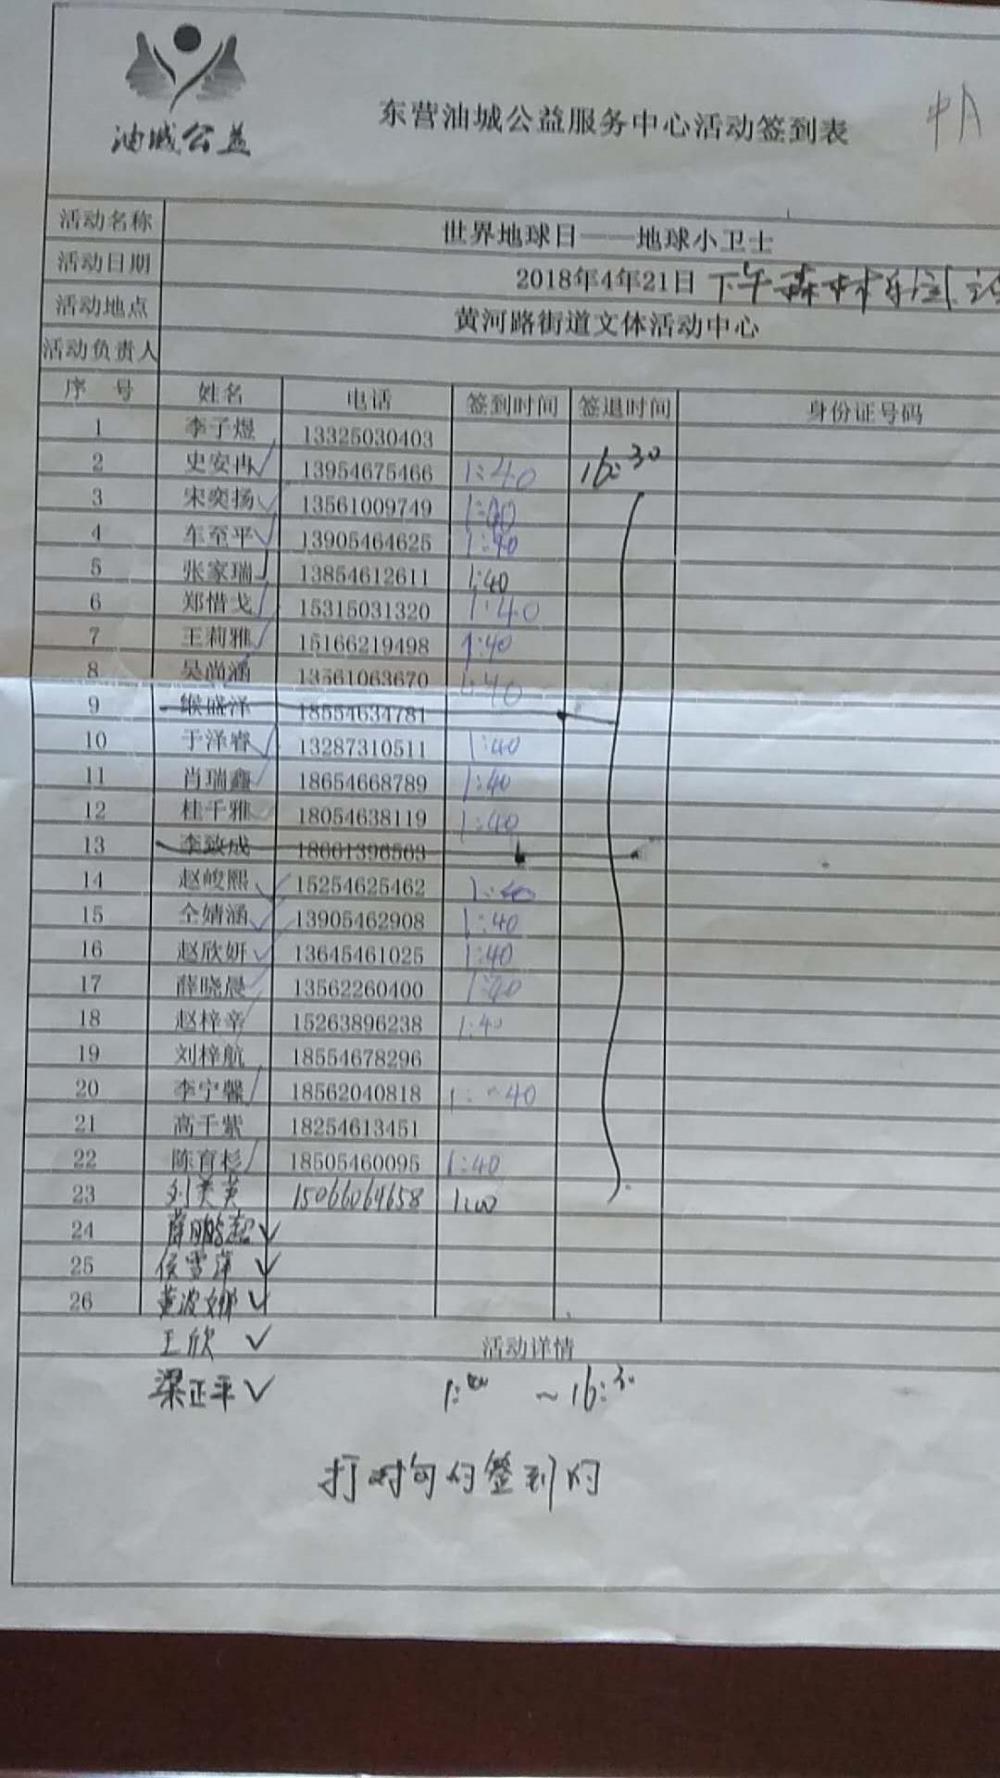 油城公益
东营油城公益服务中心活动签到表
活动名称 世界地球日——地球小卫士
活动日期 2018年4年21日 下午森林乐园
活动地点 黄河路街道文体活动中心
活动负责人
序 号 姓名 电话 签到时间 签退时间 身份证号码
1 李子煜 13325030403
2 史安冉 ✓ 13954675466 1:40 16:30
3 宋奕扬 ✓ 13561009749 1:40
4 车至平 ✓ 13905464625 1:40
5 张家瑞 ✓ 13854612611 1:40
6 郑惜戈 ✓ 15315031320 1:40
7 王莉雅 ✓ 15166219498 1:40
8 吴尚涵 ✓ 13561063670 1:40
9 缑盛泽 18554634781
10 于泽睿 ✓ 13287310511 1:40
11 肖瑞鑫 ✓ 18654668789 1:40
12 桂千雅 ✓ 18054638119 1:40
13 李致成 18661396563
14 赵峻熙 ✓ 15254625462 1:40
15 仝婧涵 ✓ 13905462908 1:40
16 赵欣妍 ✓ 13645461025 1:40
17 薛晓晨 ✓ 13562260400 1:40
18 赵梓辛 ✓ 15263896238 1:40
19 刘梓航 18554678296
20 李宁馨 ✓ 18562040818 1:40
21 高千紫 18254613451
22 陈育杉 ✓ 18505460095 1:40
23 刘美英 15066064658 1:00
24 薛鹏超 ✓
25 侯雪萍 ✓
26 董波娜 ✓
王欣 ✓ 活动详情
梁正平 ✓ 1:00 ~16:30
打对勾的签到的